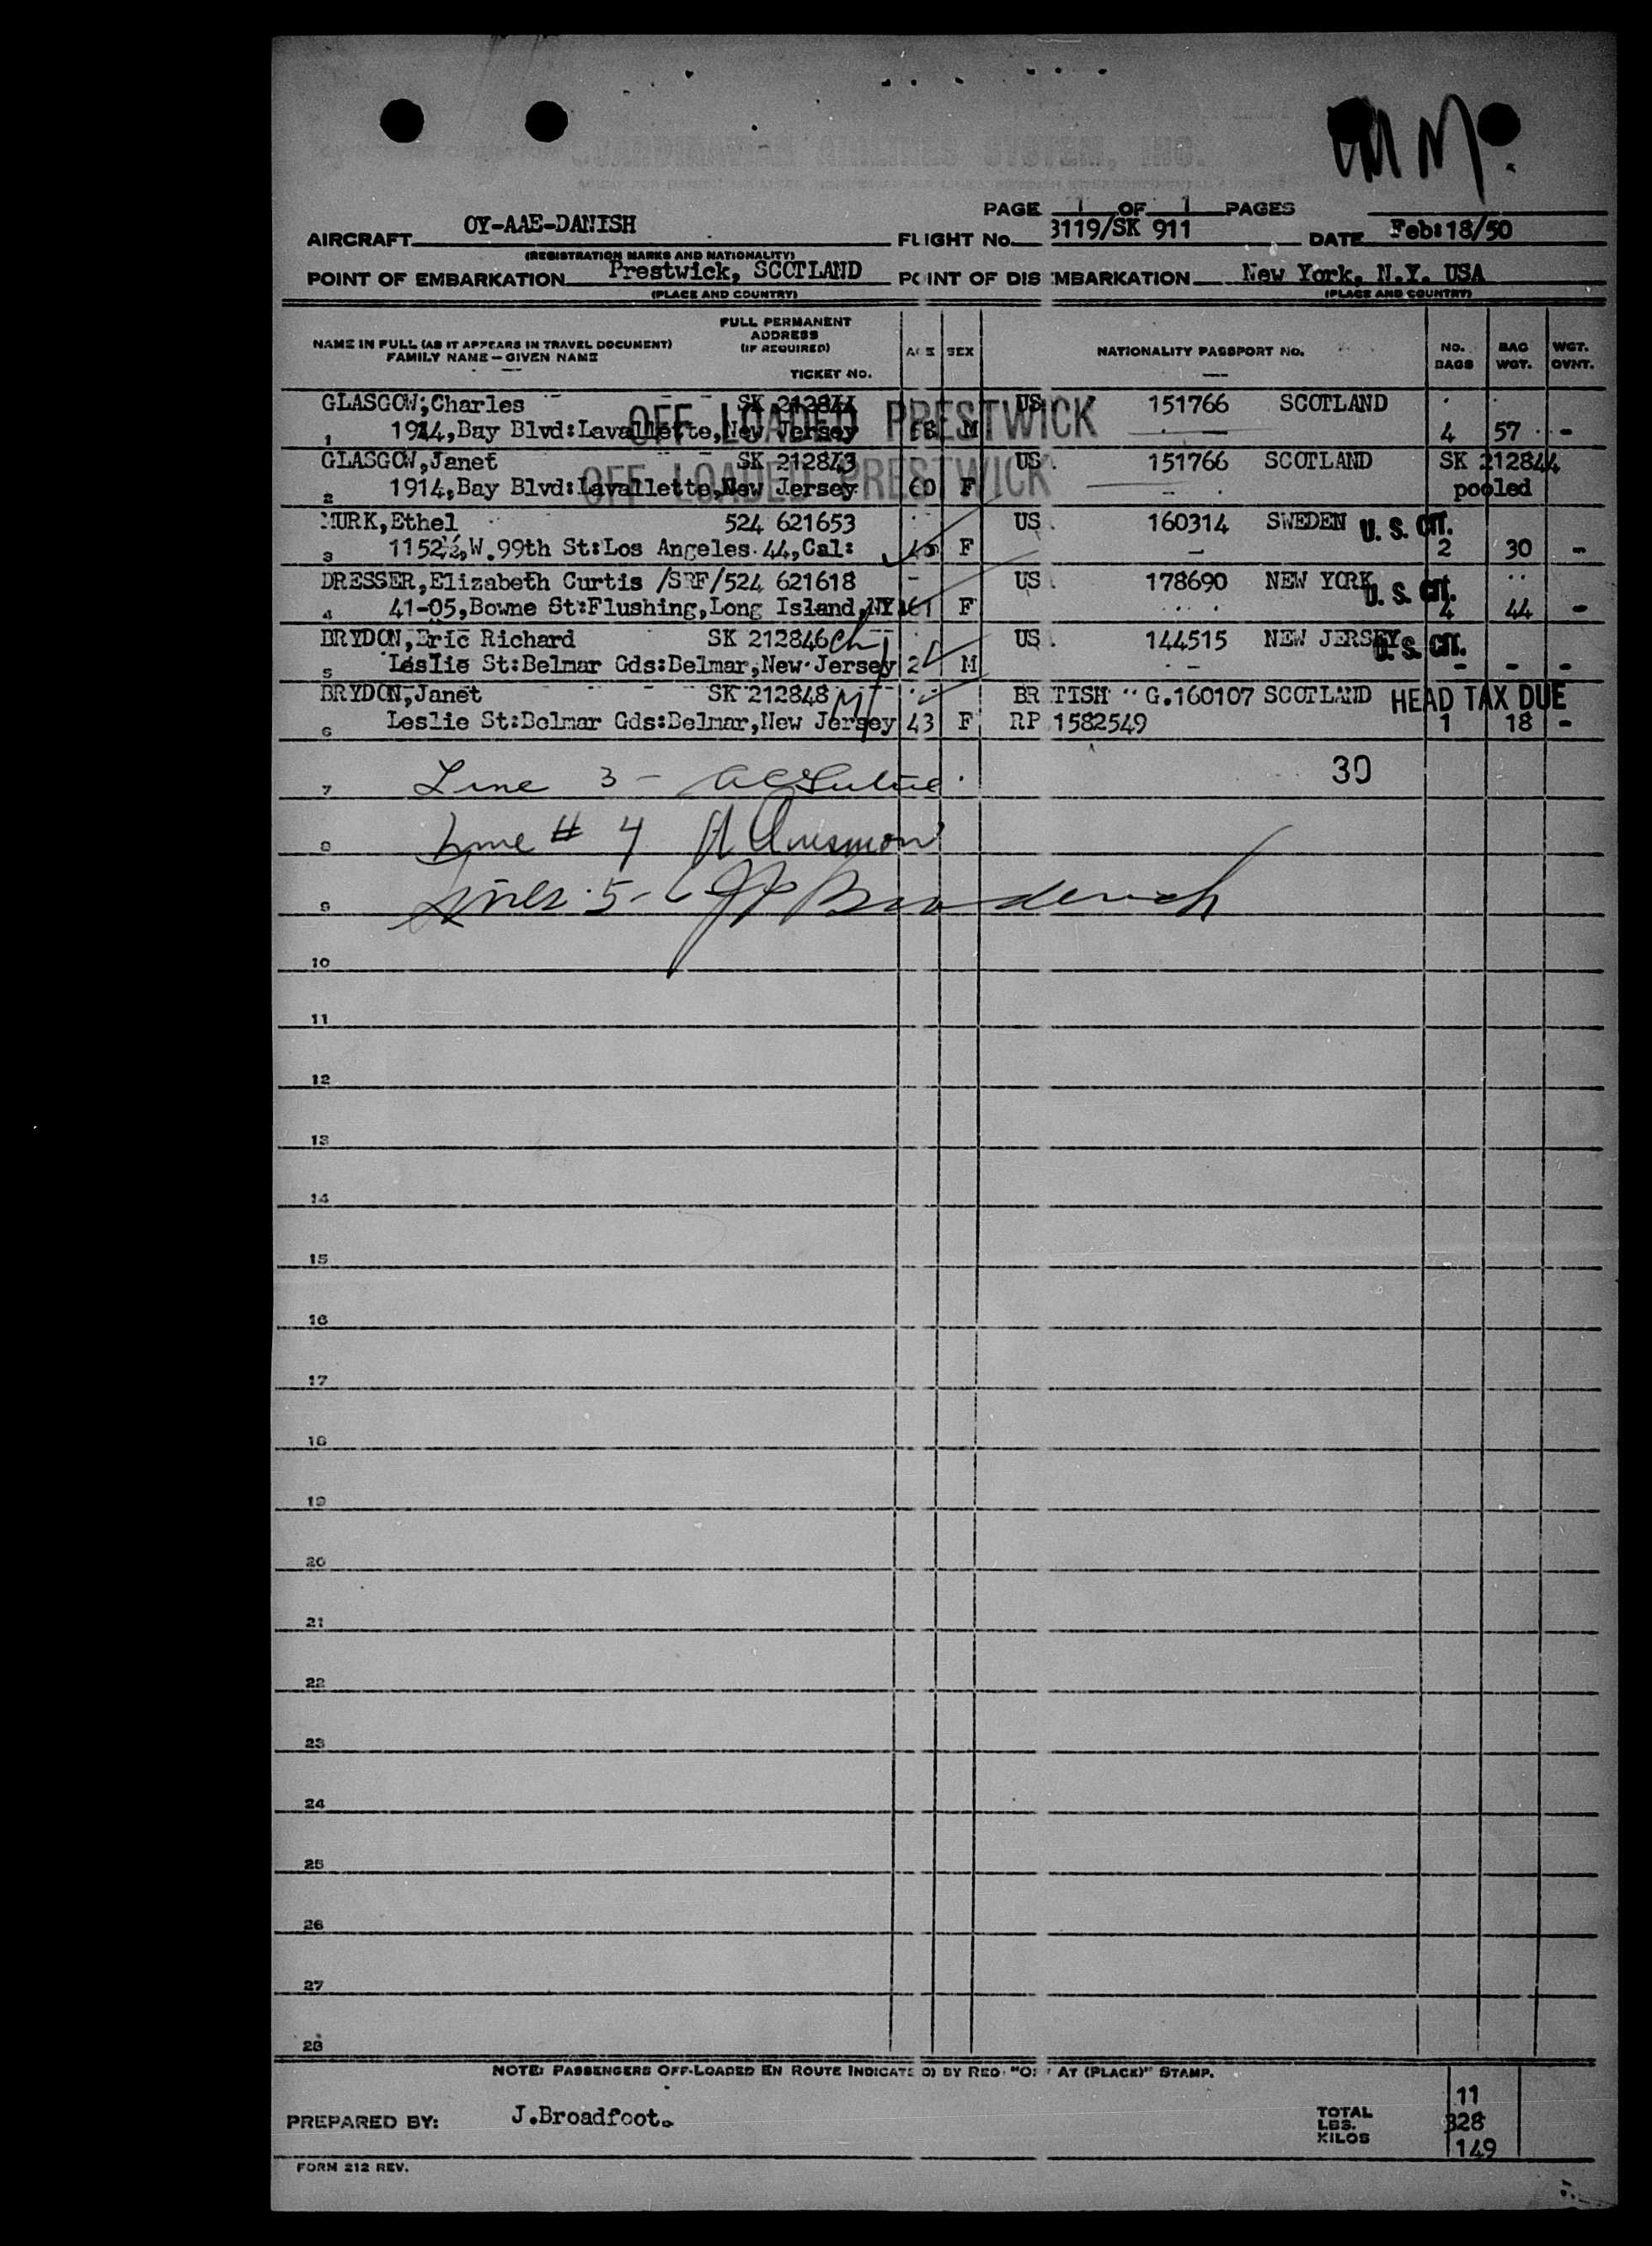 SCANDINAVIAN AIRLINES SYSTEM, INC.
PAGE 1 OF 1 PAGES
AIRCRAFT OY-AAE-DANISH FLIGHT No. 3119/SK 911 DATE Feb:18/50
(REGISTRATION MARKS AND NATIONALITY)
POINT OF EMBARKATION Prestwick, SCOTLAND POINT OF DIS MBARKATION New York, N.Y. USA
(PLACE AND COUNTRY) (PLACE AND COUNTRY)
NAME IN FULL (AS IT APPEARS IN TRAVEL DOCUMENT)
FAMILY NAME — GIVEN NAME
FULL PERMANENT
ADDRESS
(IF REQUIRED)
TICKET No.
AGE SEX NATIONALITY PASSPORT No. NO. BAGS BAG WGT. WGT. OVNT.
GLASGOW, Charles SK 212844 US 151766 SCOTLAND
1 1914, Bay Blvd: Lavallette, New Jersey M 4 57 -
OFF LOADED PRESTWICK
GLASGOW, Janet SK 212843 US. 151766 SCOTLAND SK 212844
2 1914, Bay Blvd: Lavallette, New Jersey 60 F pooled
OFF LOADED PRESTWICK
MURK, Ethel 524 621653 US. 160314 SWEDEN U. S. CIT.
3 1152½, W. 99th St: Los Angeles 44, Cal: F 2 30 -
DRESSER, Elizabeth Curtis /SRF/ 524 621618 US. 178690 NEW YORK U. S. CIT.
4 41-05, Bowne St: Flushing, Long Island, NY 61 F 4 44 -
BRYDON, Eric Richard SK 212846 US. 144515 NEW JERSEY U. S. CIT.
5 Leslie St: Belmar Gds: Belmar, New Jersey M - - -
BRYDON, Janet SK 212848 BR TISH G.160107 SCOTLAND HEAD TAX DUE
6 Leslie St: Belmar Gds: Belmar, New Jersey 43 F RP 1582549 1 18 -
7 Line 3 - 30
8 Line # 4
9 Lines 5-6
10
11
12
13
14
15
16
17
18
19
20
21
22
23
24
25
26
27
28
NOTE: PASSENGERS OFF-LOADED EN ROUTE INDICATED BY RED "OFF AT (PLACE)" STAMP.
PREPARED BY: J.Broadfoot.
TOTAL 11
LBS. 328
KILOS 149
FORM 212 REV.